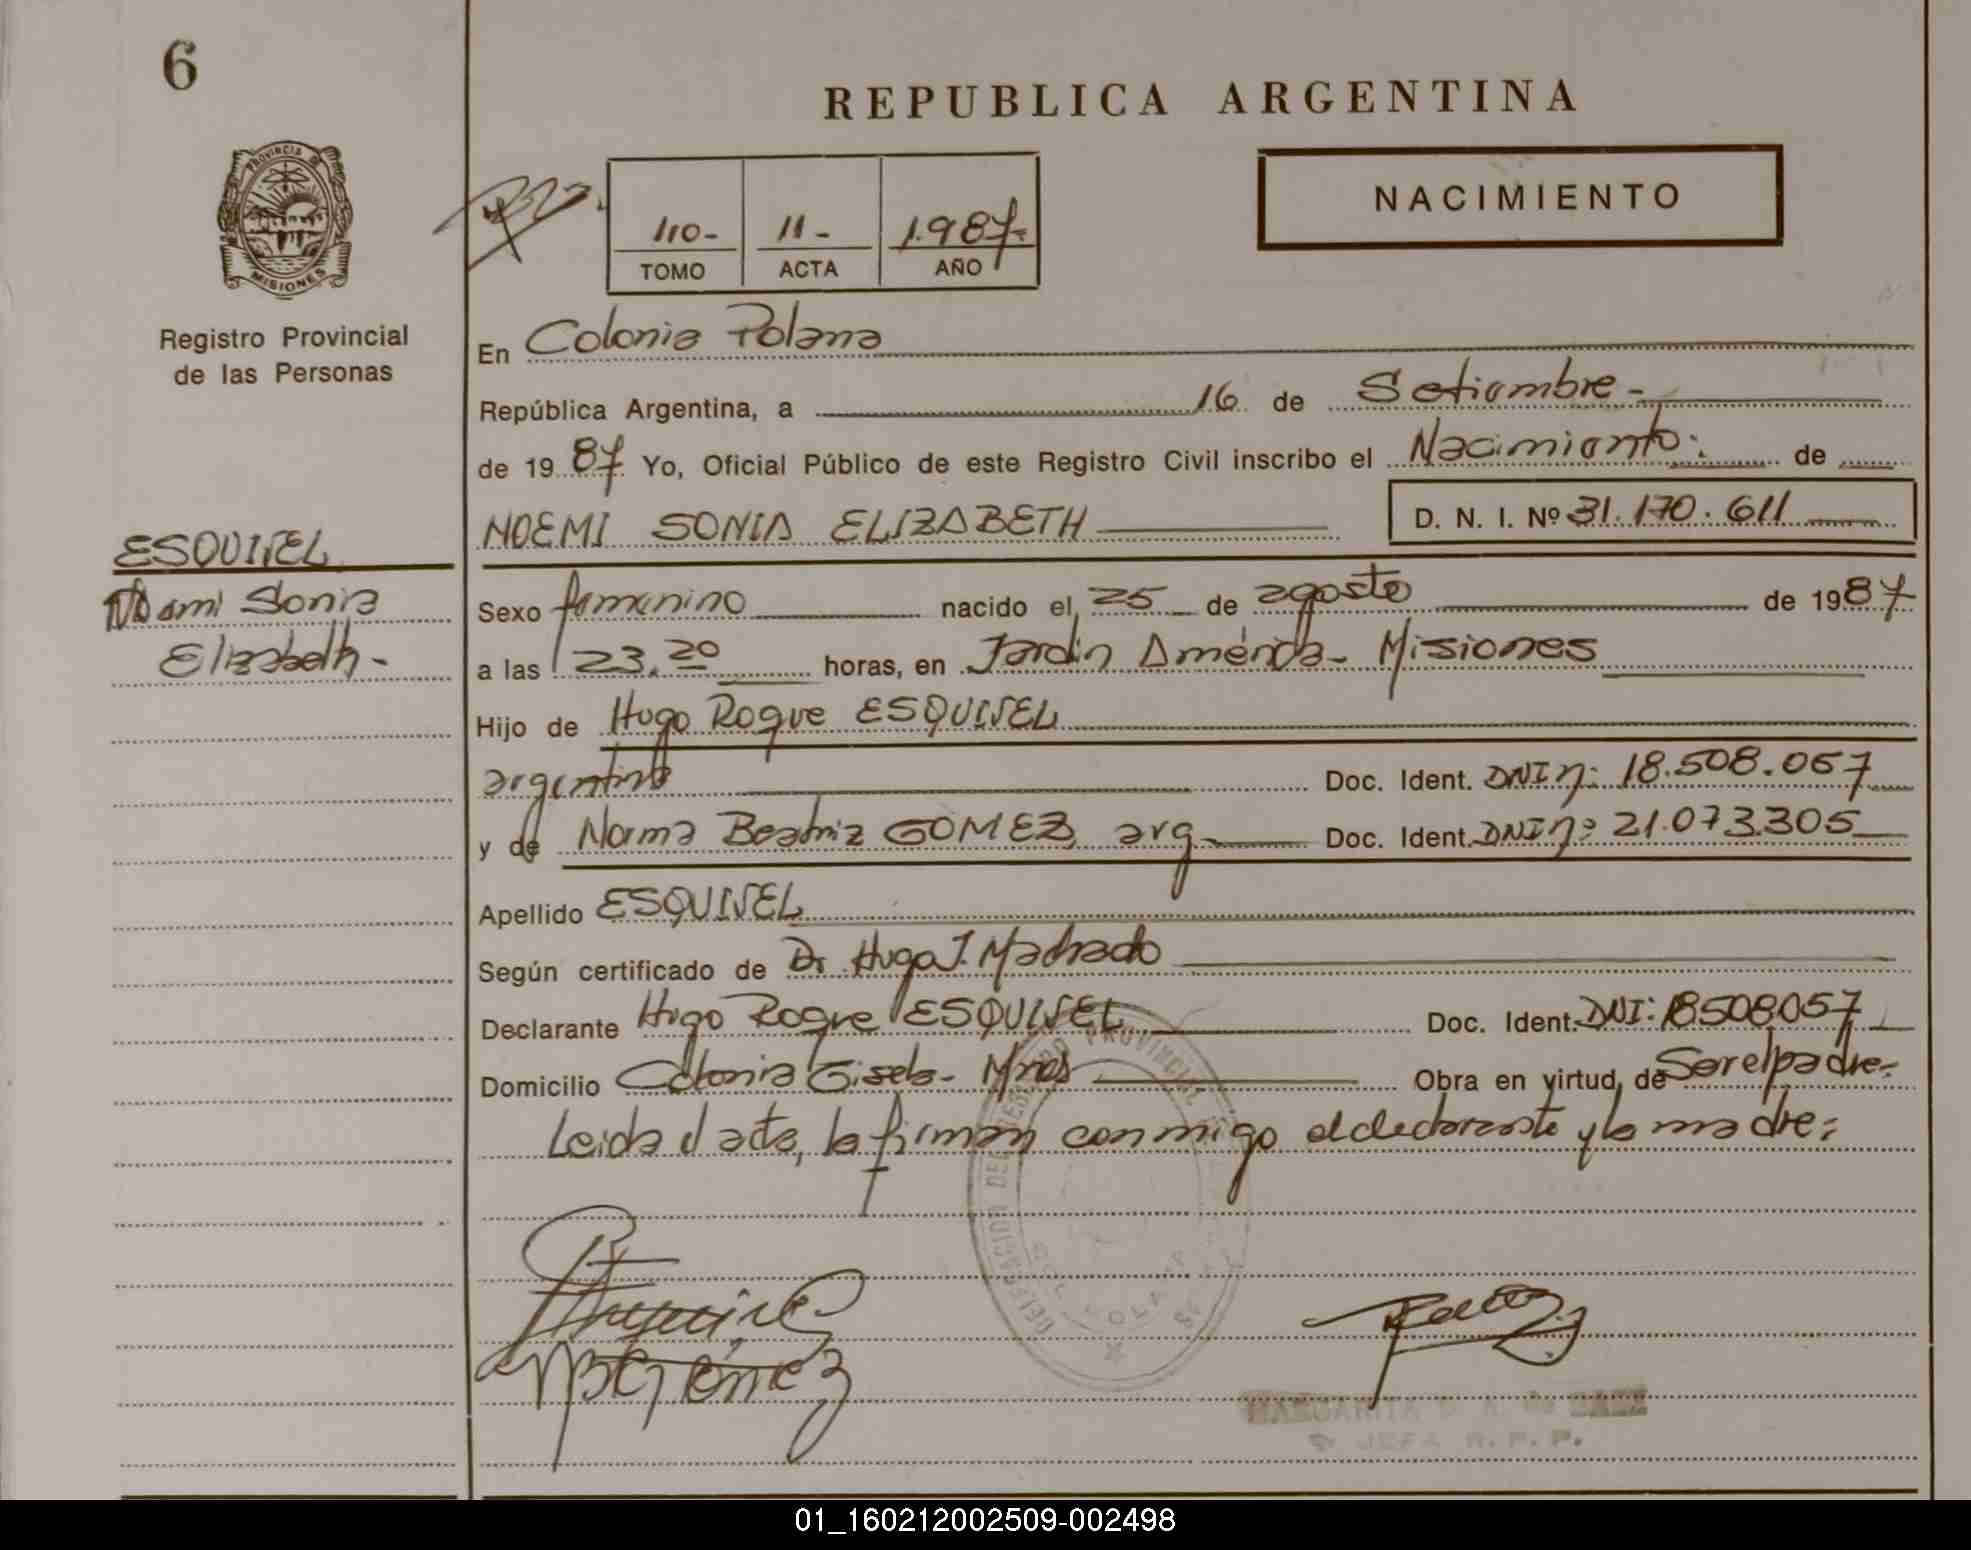 6
REPUBLICA ARGENTINA
PROVINCIA DE
MISIONES
Registro Provincial
de las Personas
110- 11- 1.987-
TOMO ACTA AÑO
NACIMIENTO
En Colonia Polana
República Argentina, a 16 de Setiembre-
de 19 87 Yo, Oficial Público de este Registro Civil inscribo el Nacimiento: de
NOEMI SONIA ELIZABETH D. N. I. Nº 31.170.611
ESQUIVEL
Noemi Sonia
Elizabeth-
Sexo femenino nacido el 25 de agosto de 1987
a las 23.20 horas, en Jardín América- Misiones
Hijo de Hugo Roque ESQUIVEL
argentino Doc. Ident. DNI nº: 18.508.057
y de Norma Beatriz GOMEZ arg. Doc. Ident. DNI nº 21.073.305
Apellido ESQUIVEL
Según certificado de Dr. Hugo J. Machado
Declarante Hugo Roque ESQUIVEL Doc. Ident. DNI: 18508057
Domicilio Colonia Gisela- Mnes Obra en virtud de Ser el padre-
Leida el acta, la firman conmigo el declarante y la madre:
DELEGACION DEL REGISTRO PROVINCIAL
COL. POLANA
MARGARITA de BAEZ
JEFA R. P. P.
01_160212002509-002498